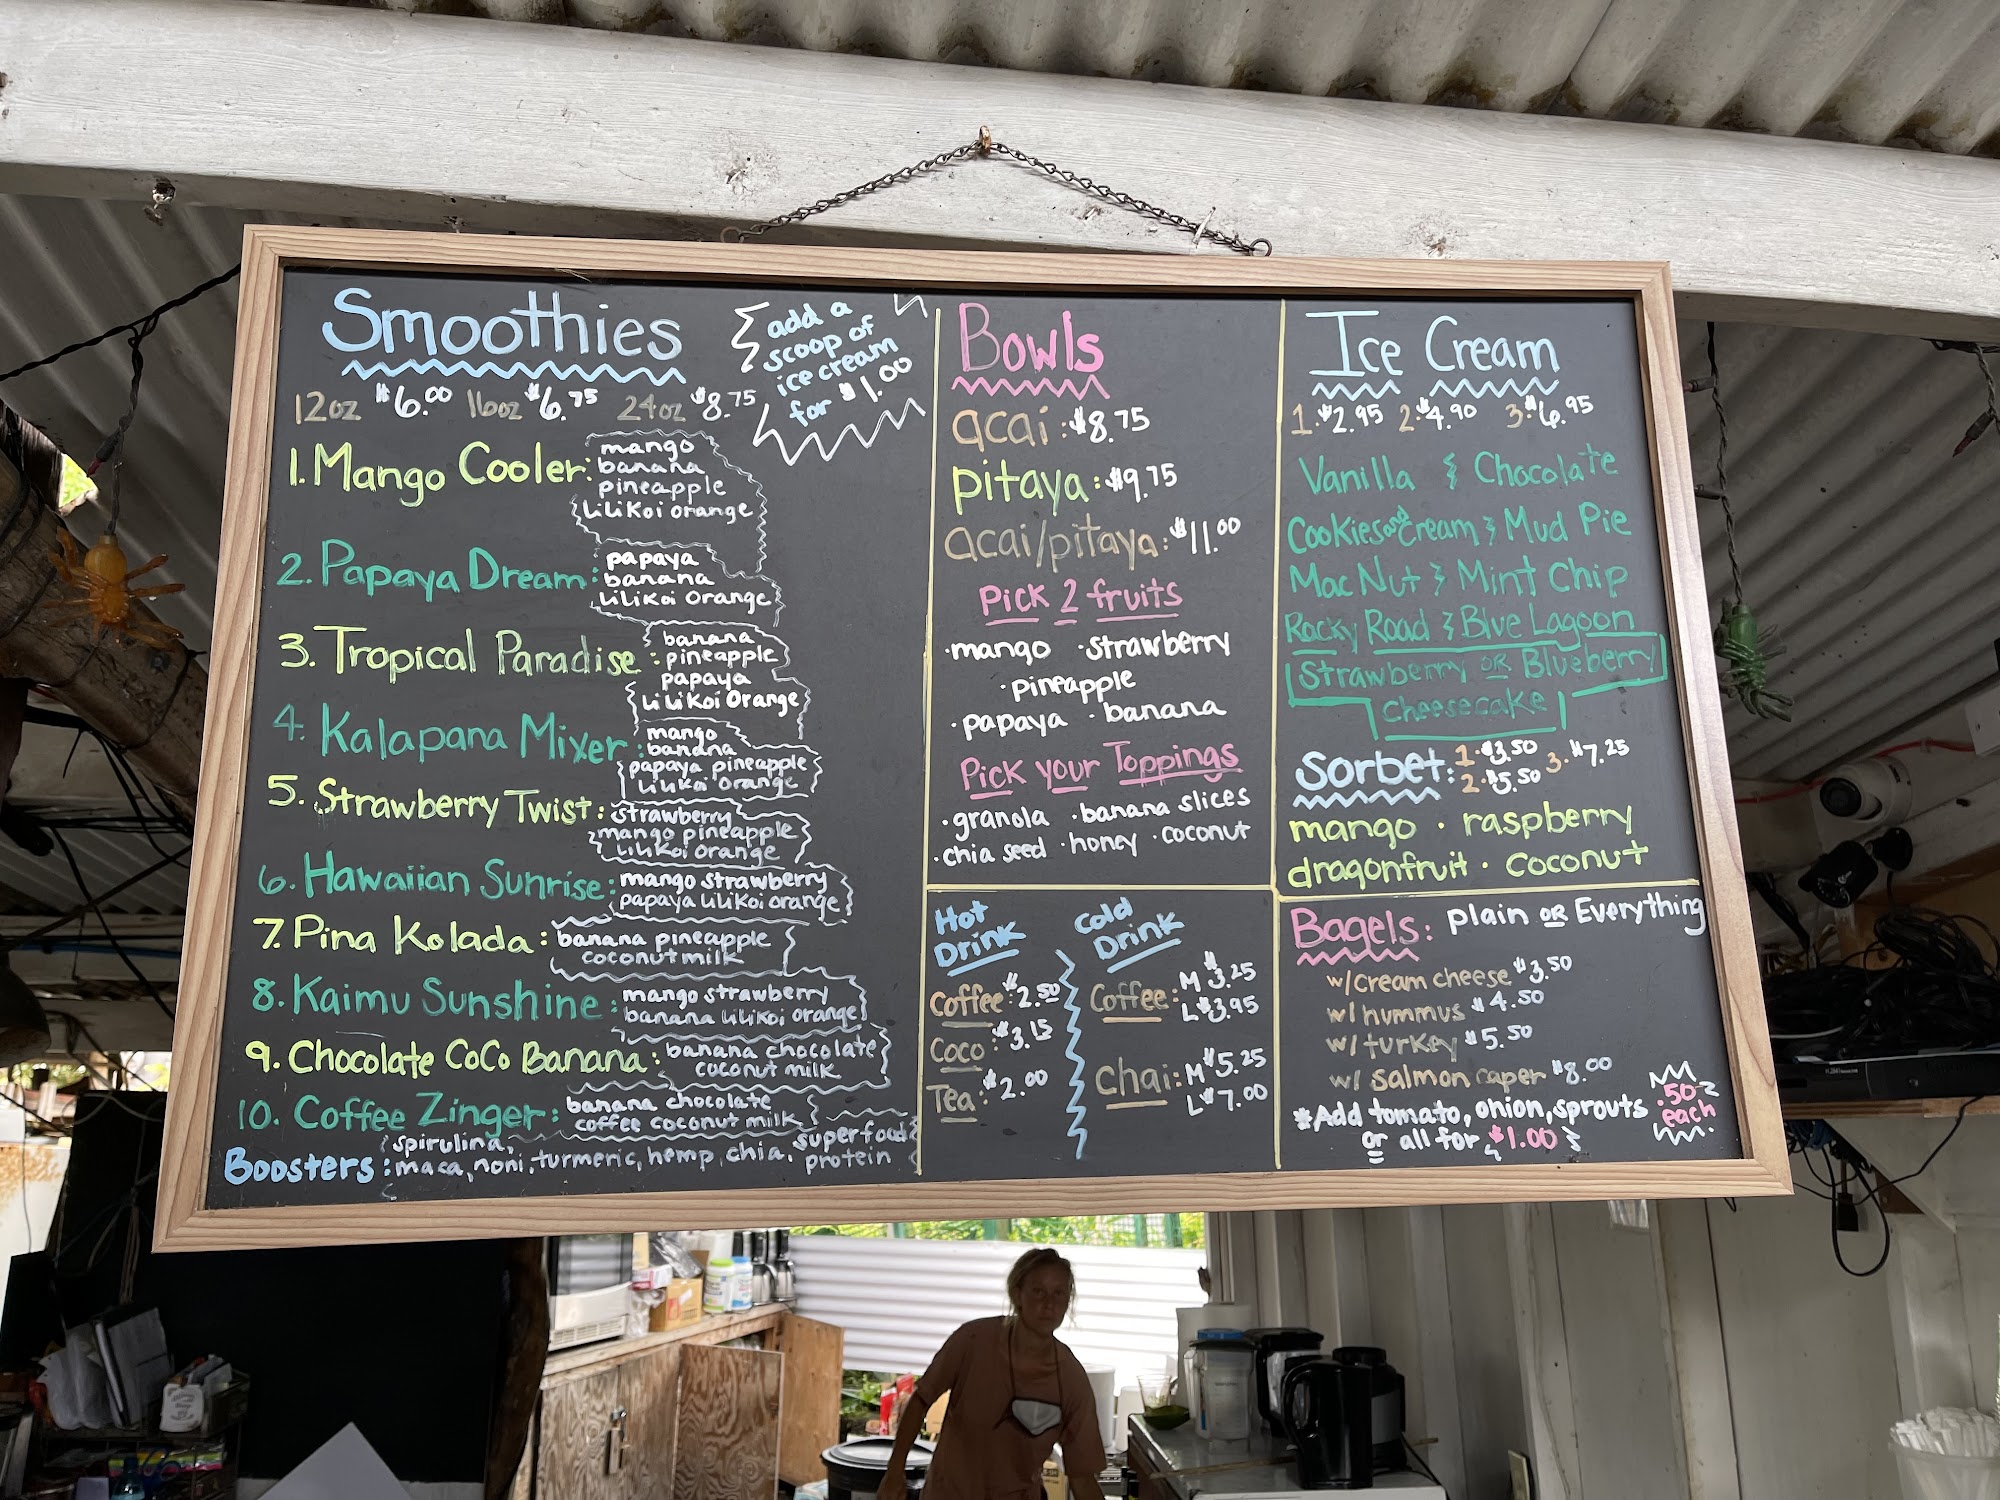 Smoothies
add a
scoop of
ice cream
for $1.00
12oz $6.00 16oz $6.75 24oz $8.75
1. Mango Cooler:
mango
banana
pineapple
LiLiKoi orange
2. Papaya Dream:
papaya
banana
LiLiKoi Orange
3. Tropical Paradise:
banana
pineapple
papaya
LiLiKoi Orange
4. Kalapana Mixer:
mango
banana
papaya pineapple
LiLiKoi orange
5. Strawberry Twist:
strawberry
mango pineapple
LiLiKoi orange
6. Hawaiian Sunrise:
mango strawberry
papaya LiLiKoi orange
7. Pina Kolada:
banana pineapple
coconut milk
8. Kaimu Sunshine:
mango strawberry
banana LiLiKoi orange
9. Chocolate CoCo Banana:
banana chocolate
coconut milk
10. Coffee Zinger:
banana chocolate
coffee coconut milk
Boosters:
spirulina,
maca, noni, turmeric, hemp, chia, superfood
protein
Bowls
acai: $8.75
pitaya: $9.75
acai/pitaya: $11.00
Pick 2 fruits
·mango ·strawberry
·pineapple
·papaya ·banana
Pick your Toppings
·granola ·banana slices
·chia seed ·honey ·coconut
Hot
Drink
Coffee: $2.50
Coco: $3.15
Tea: $2.00
Cold
Drink
Coffee: M $3.25
L $3.95
Chai: M $5.25
L $7.00
Ice Cream
1. $2.95 2. $4.90 3. $6.95
Vanilla & Chocolate
Cookies and Cream & Mud Pie
Mac Nut & Mint Chip
Rocky Road & Blue Lagoon
Strawberry OR Blueberry
cheesecake
Sorbet: 1. $3.50 3. $7.25
2. $5.50
mango · raspberry
dragonfruit · coconut
Bagels: plain OR Everything
w/cream cheese $3.50
w/ hummus $4.50
w/ turkey $5.50
w/ salmon caper $8.00
*Add tomato, onion, sprouts .50
each
or all for $1.00